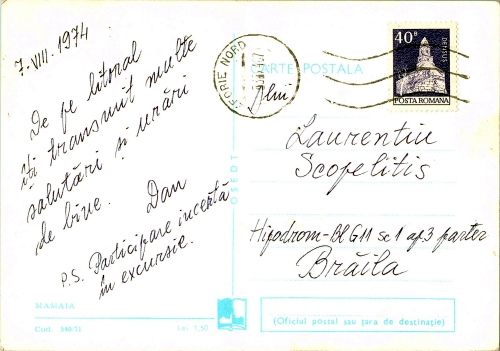 7.VIII.1974
De pe litoral
îți transmit multe
salutări și urări
de bine. Dan
P.S. Participare incertă
în excursie.
MAMAIA
Lei 1,50
OSEDT
EFORIE NORD
CARTE POSTALA
40B
DENSUS
POSTA ROMANA
Dlui
Laurentiu
Scopelitis
Hipodrom-Bl G11 sc 1 ap.3 parter
Brăila
(Oficiul postal sau țara de destinație)